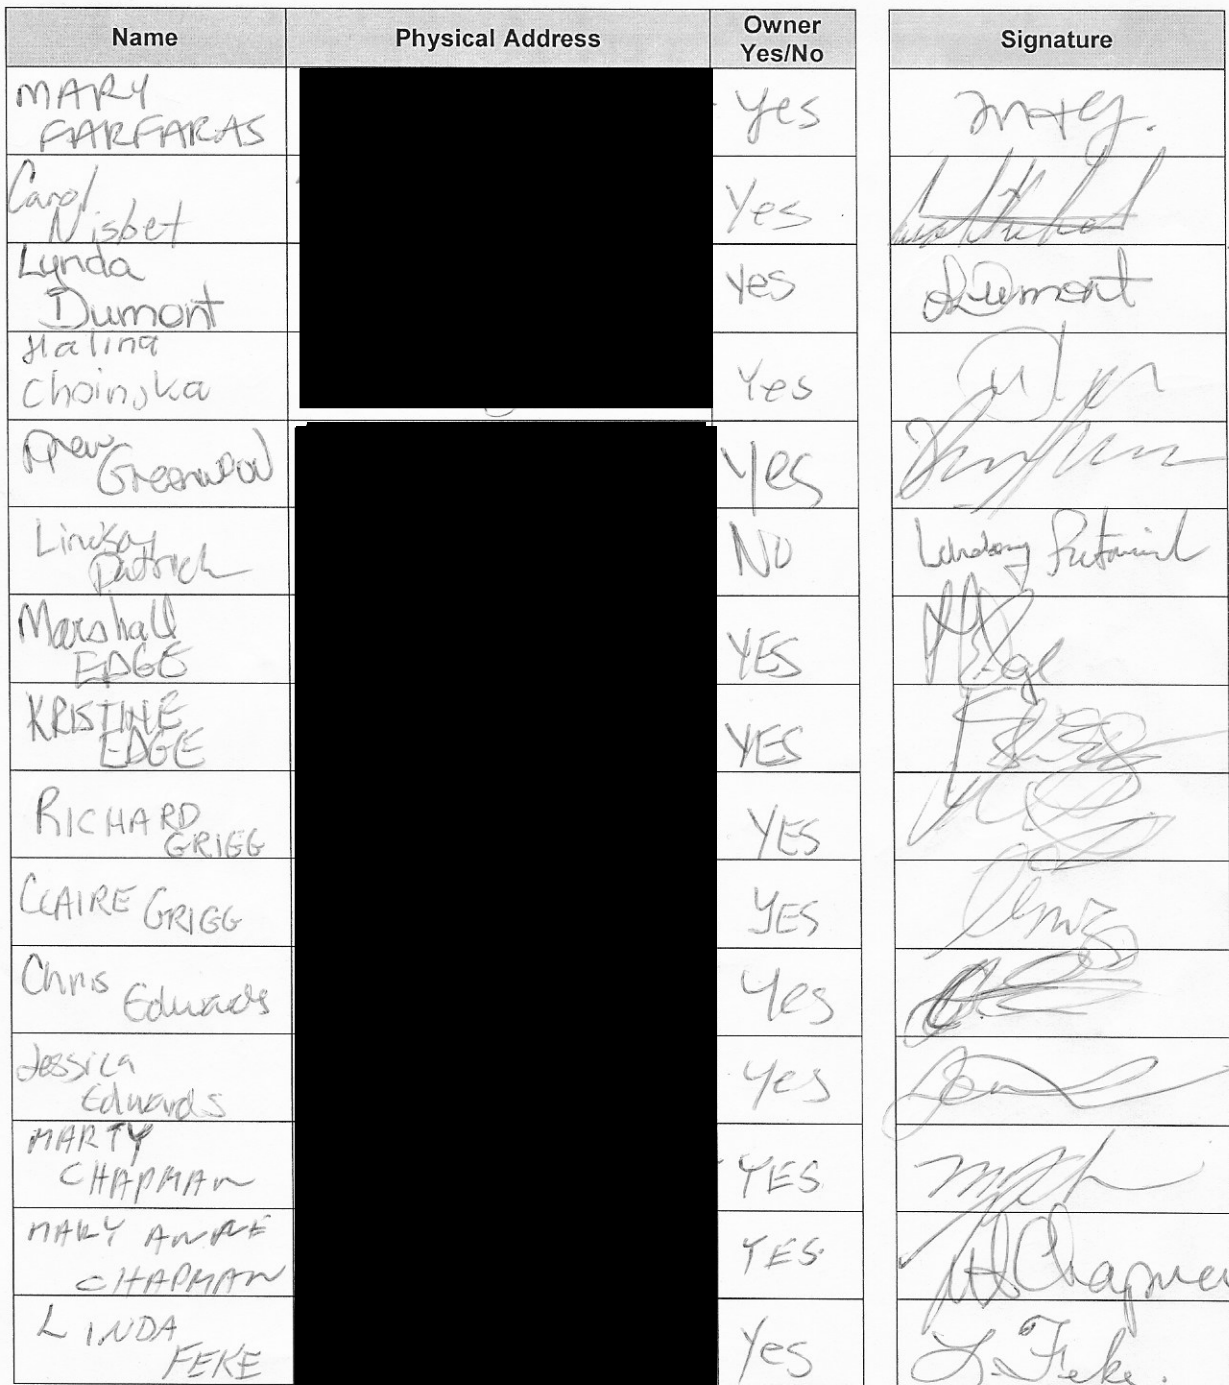 Name Physical Address Owner Yes/No Signature
MARY FARFARAS Yes
Carol Nisbet Yes
Lynda Dumont Yes LDumont
Halina Choinska Yes
Drew Greenwood Yes
Lindsay Patrick NO
Marshall EDGE YES
KRISTINE EDGE YES
RICHARD GRIGG YES
CLAIRE GRIGG YES
Chris Edwards Yes
Jessica Edwards Yes
MARTY CHAPMAN YES
MARY ANNE CHAPMAN YES
LINDA FEKE Yes L. Feke.